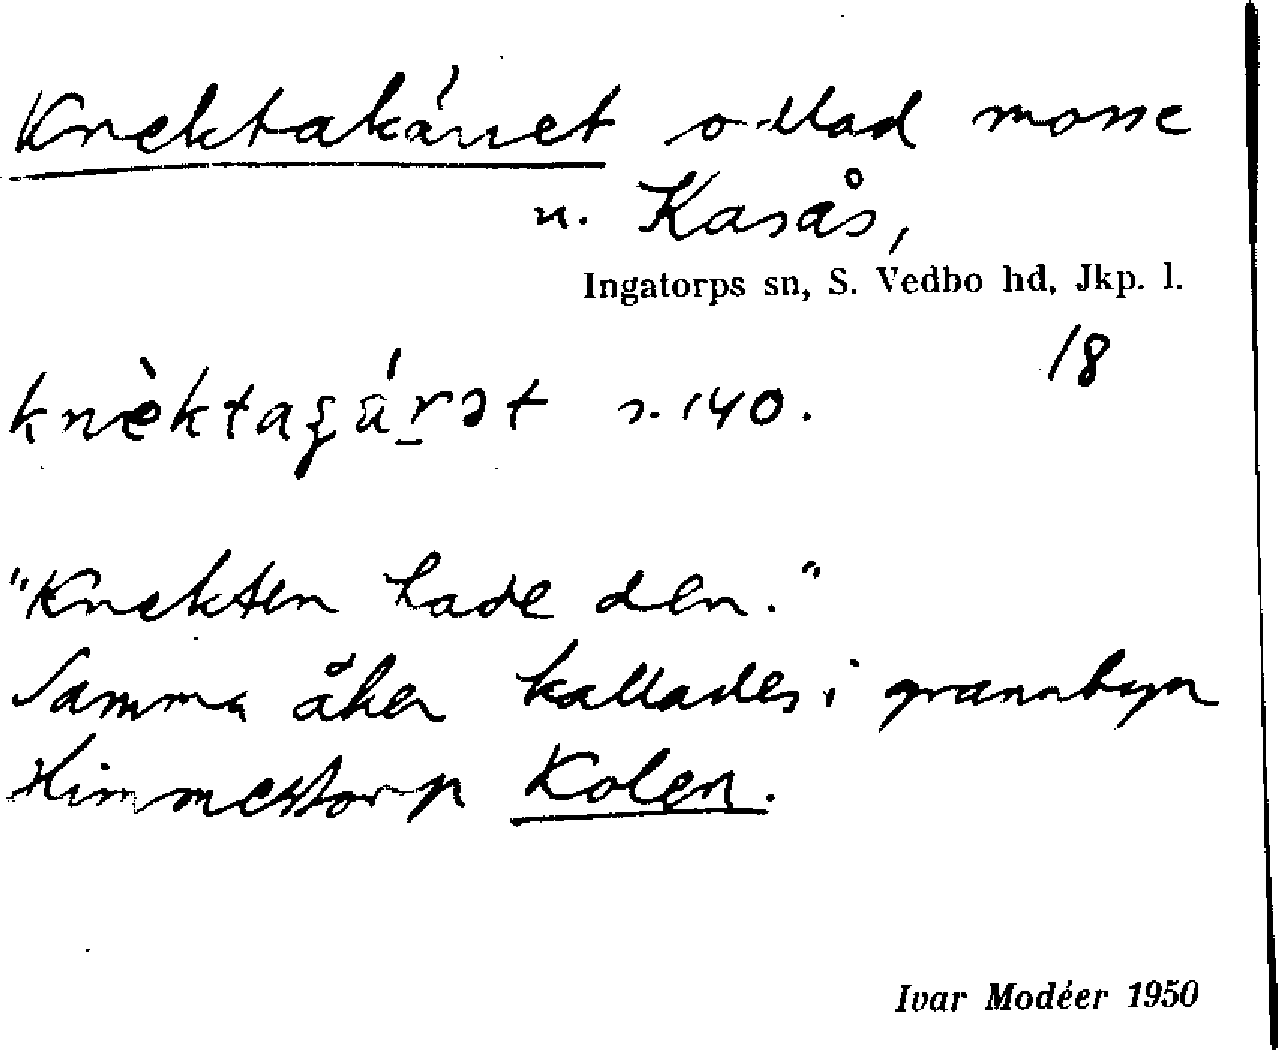 Knektakärret odlad mosse
u. Kasås,
Ingatorps sn, S. Vedbo hd, Jkp. l.
18
s. 140.
"Knekten hade den."
Samma åker kallades i grannbyn
Himmestorp Kolen.
Ivar Modéer 1950